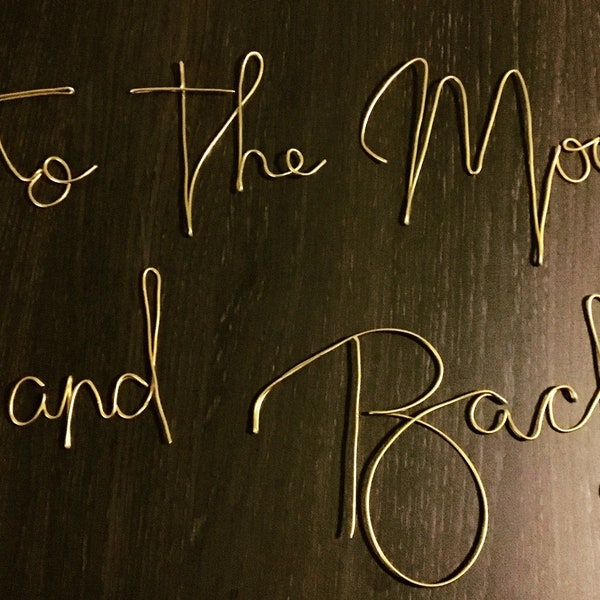 to the Moo
and Back